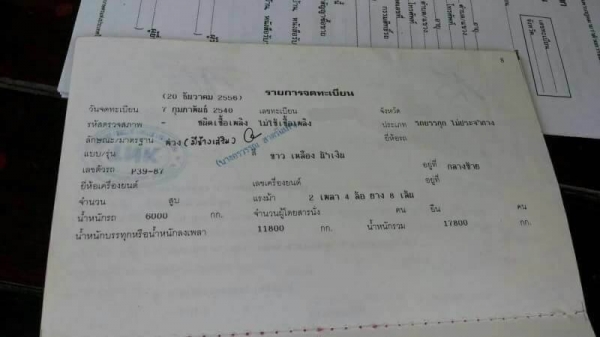 (20 ธันวาคม 2556) รายการจดทะเบียน
วันจดทะเบียน 7 กุมภาพันธ์ 2540 เลขทะเบียน จังหวัด
รหัสตรวจสภาพ - ชนิดเชื้อเพลิง ไม่ใช้เชื้อเพลิง ประเภท รถบรรทุก ไม่ประจำทาง
ลักษณะ/มาตรฐาน พ่วง (มีข้างเสริม) ยี่ห้อรถ
แบบ/รุ่น สี ขาว เหลือง ฟ้าเงิน
เลขตัวรถ P39-87 อยู่ที่ กลางซ้าย
ยี่ห้อเครื่องยนต์ เลขเครื่องยนต์ อยู่ที่
จำนวน สูบ แรงม้า 2 เพลา 4 ล้อ ยาง 8 เส้น
น้ำหนักรถ 6000 กก. จำนวนผู้โดยสารนั่ง คน ยืน คน
น้ำหนักบรรทุกหรือน้ำหนักลงเพลา 11800 กก. น้ำหนักรวม 17800 กก.